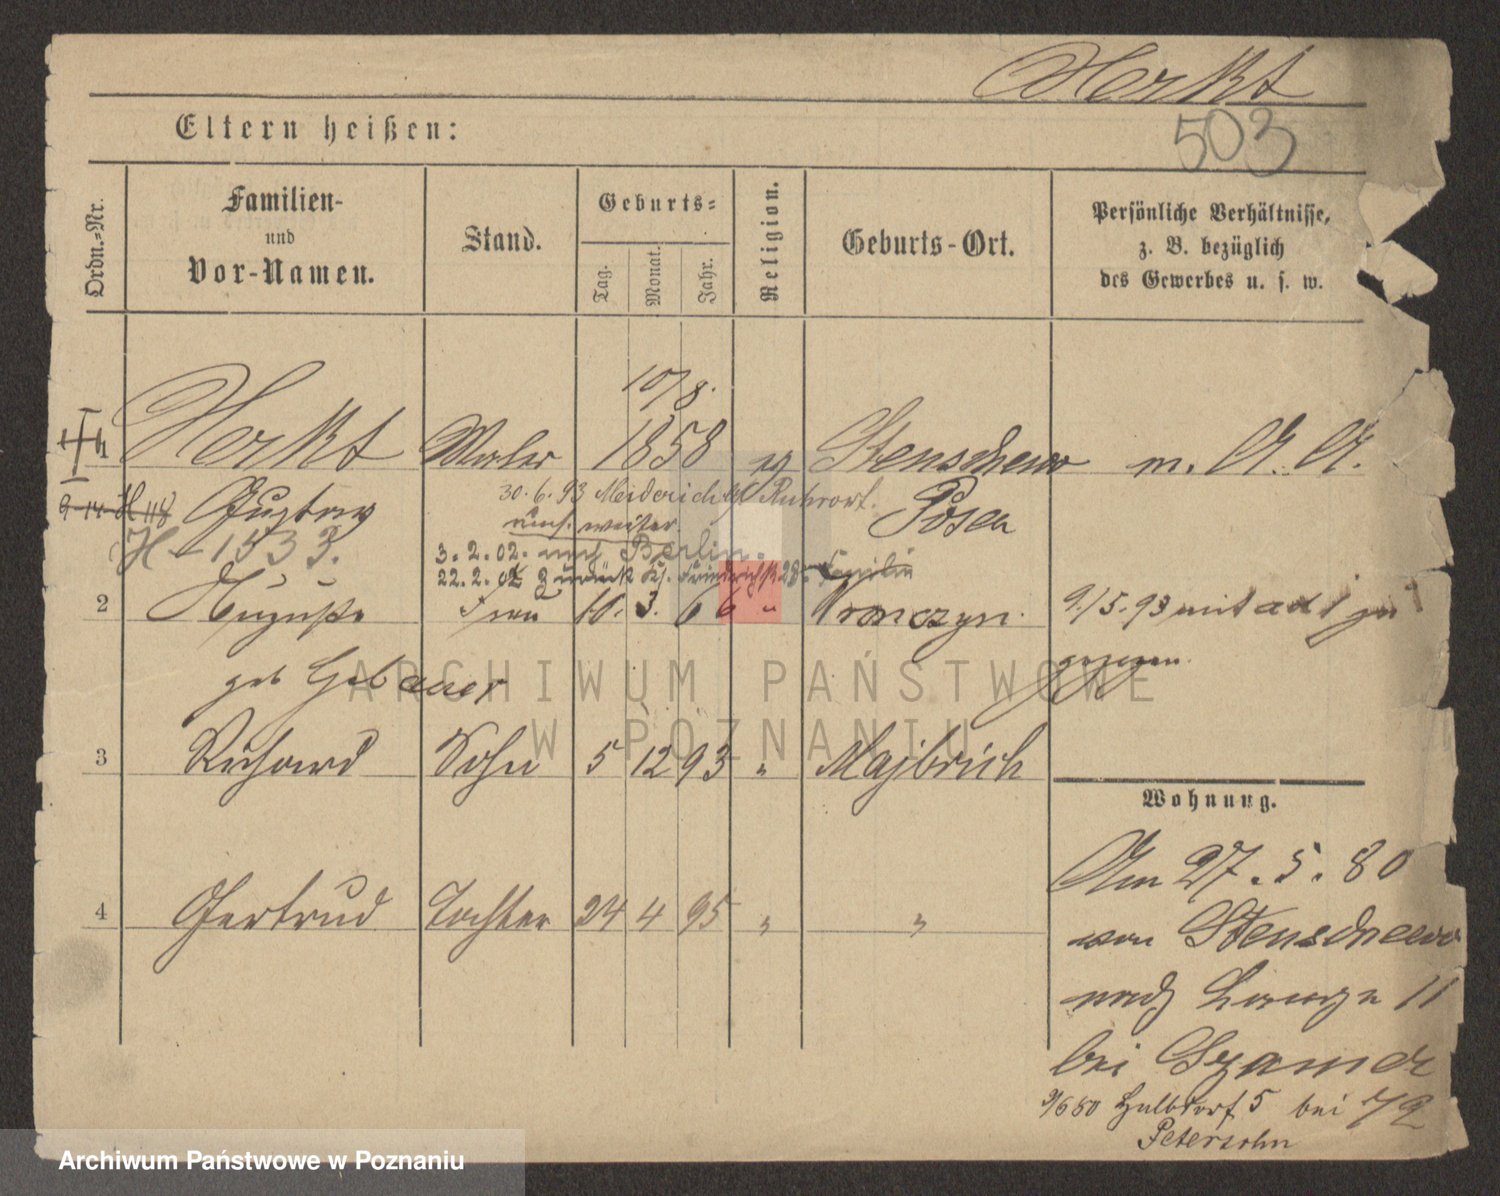 Herkt
503
Eltern heißen:
Ordn.=Nr.
Familien-
und
Vor-Namen.
Stand.
Geburts=
Tag.
Monat.
Jahr.
Religion.
Geburts-Ort.
Persönliche Verhältnisse,
z. B. bezüglich
des Gewerbes u. s. w.
10/8.
1 Herkt Maler 1858 eg Stenschewo m. A. A.
Gustav Posen
30. 6. 93 Meiderich Ruhrort.
H-1533.
weiter
3. 2. 02. nach Berlin.
22. 2. 02 zurück Familie
2 Auguste Frau 11. 3. 66 " Wronczyn. 9./5. 93 mit ad 1 zu
geb Gebauer gezogen
3 Richard Sohn 5 12 93 " Majbrich
Wohnung.
Am 27. 5. 80
4 Gertrud Tochter 24 4 95 " "
von Stenschewo
nach Lange 11
bei
9/6 80 Halbdorf 5 bei
Petersohn
ARCHIWUM PAŃSTWOWE
W POZNANIU
Archiwum Państwowe w Poznaniu